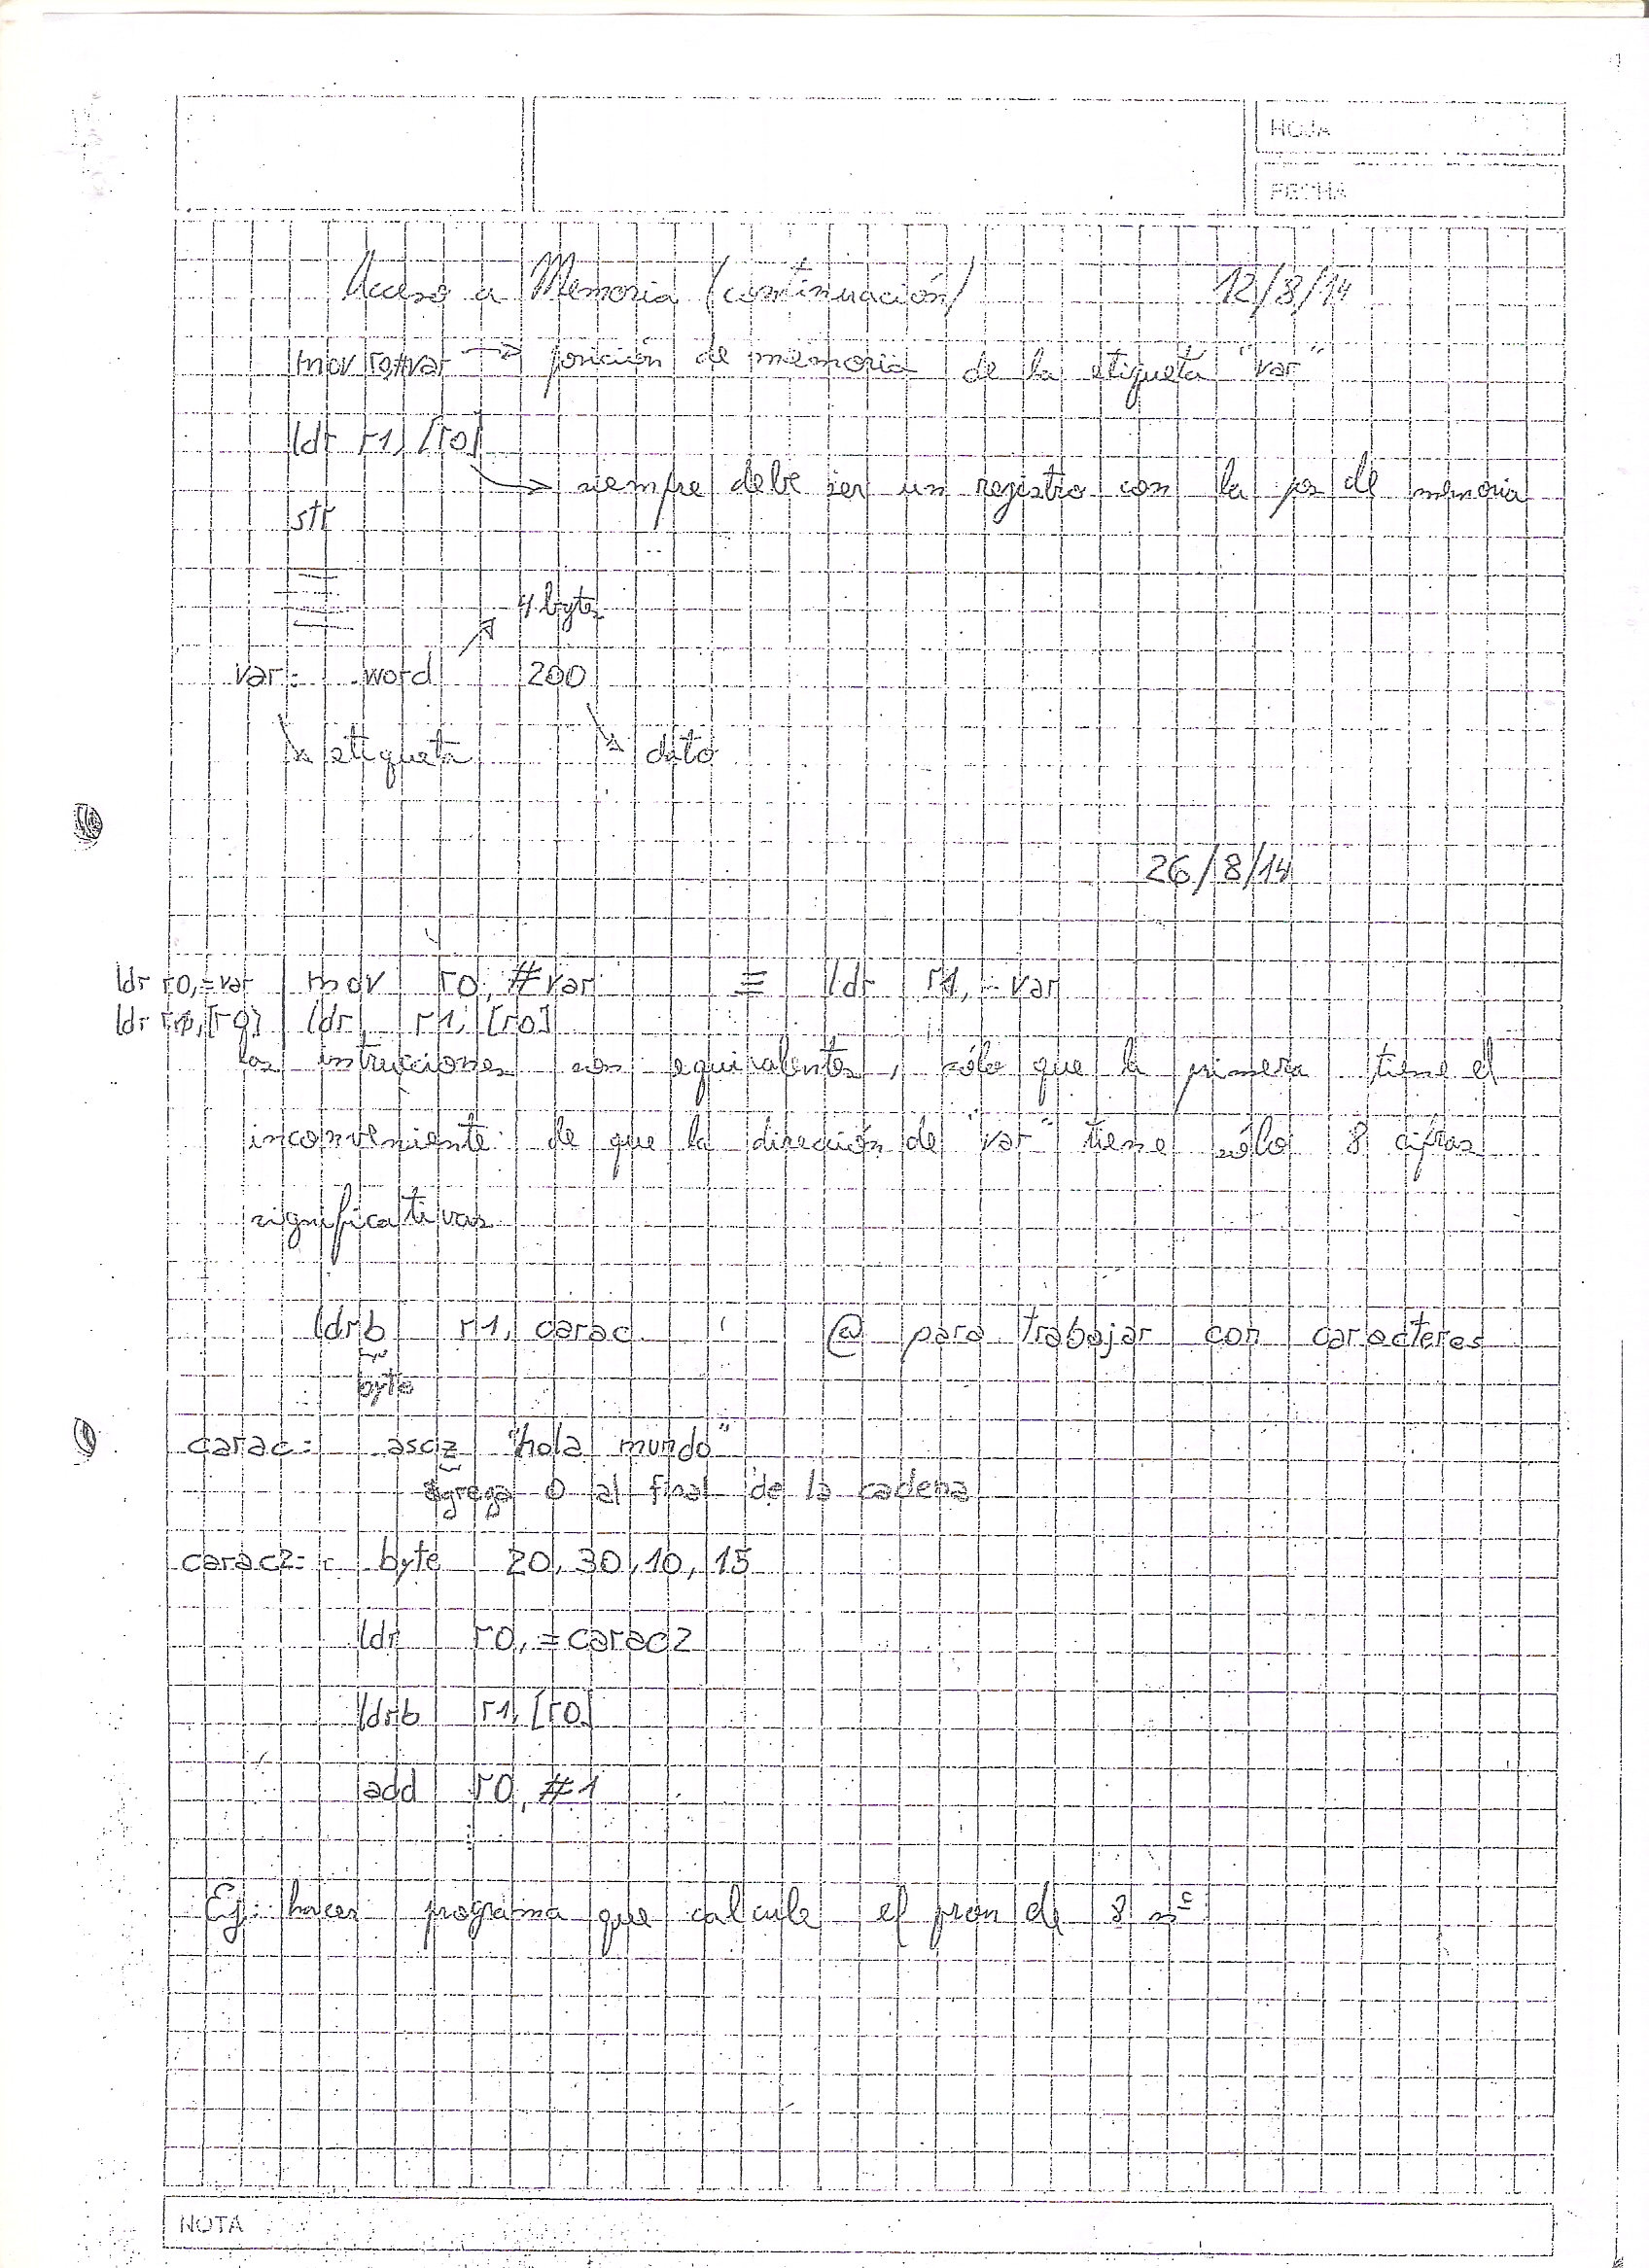 HOJA
FECHA
Acceso a Memoria (continuación) 12/8/14
mov r0,#var → posición de memoria de la etiqueta "var"
ldr r1, [r0]
→ siempre debe ser un registro con la pos de memoria
str
4 bytes
var: .word 200
etiqueta dato
26/8/14
ldr r0,=var mov r0, #var ≡ ldr r1, =var
ldr r1, [r0] ldr r1, [r0]
las instrucciones son equivalentes, sólo que la primera tiene el
inconveniente de que la dirección de "var" tiene sólo 8 cifras
significativas
ldrb r1, carac @ para trabajar con caracteres
byte
carac: asciz "hola mundo"
agrega 0 al final de la cadena
carac2: byte 20, 30, 10, 15
ldr r0, =carac2
ldrb r1, [r0]
add r0, #1
Ej: hacer programa que calcule el prom de 8 nº
NOTA